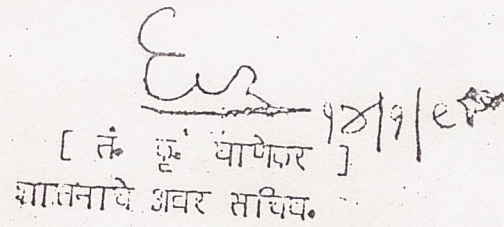 १४|१|९
[ तं. कृ. घाणेकर ]
शासनाचे अवर सचिव.